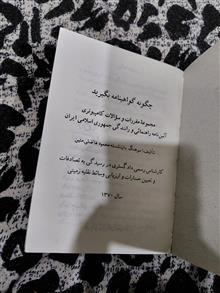 چگونه گواهینامه بگیرید
مجموعه مقررات و سؤالات کامپیوتری
آئین‌نامه راهنمائی و رانندگی جمهوری اسلامی ایران
تألیف: سرهنگ بازنشسته محمود فاضلی متین
کارشناس رسمی دادگستری در رسیدگی به تصادفات
و تعیین خسارات و ارزیابی وسائط نقلیه زمینی
سال ۱۳۷۰